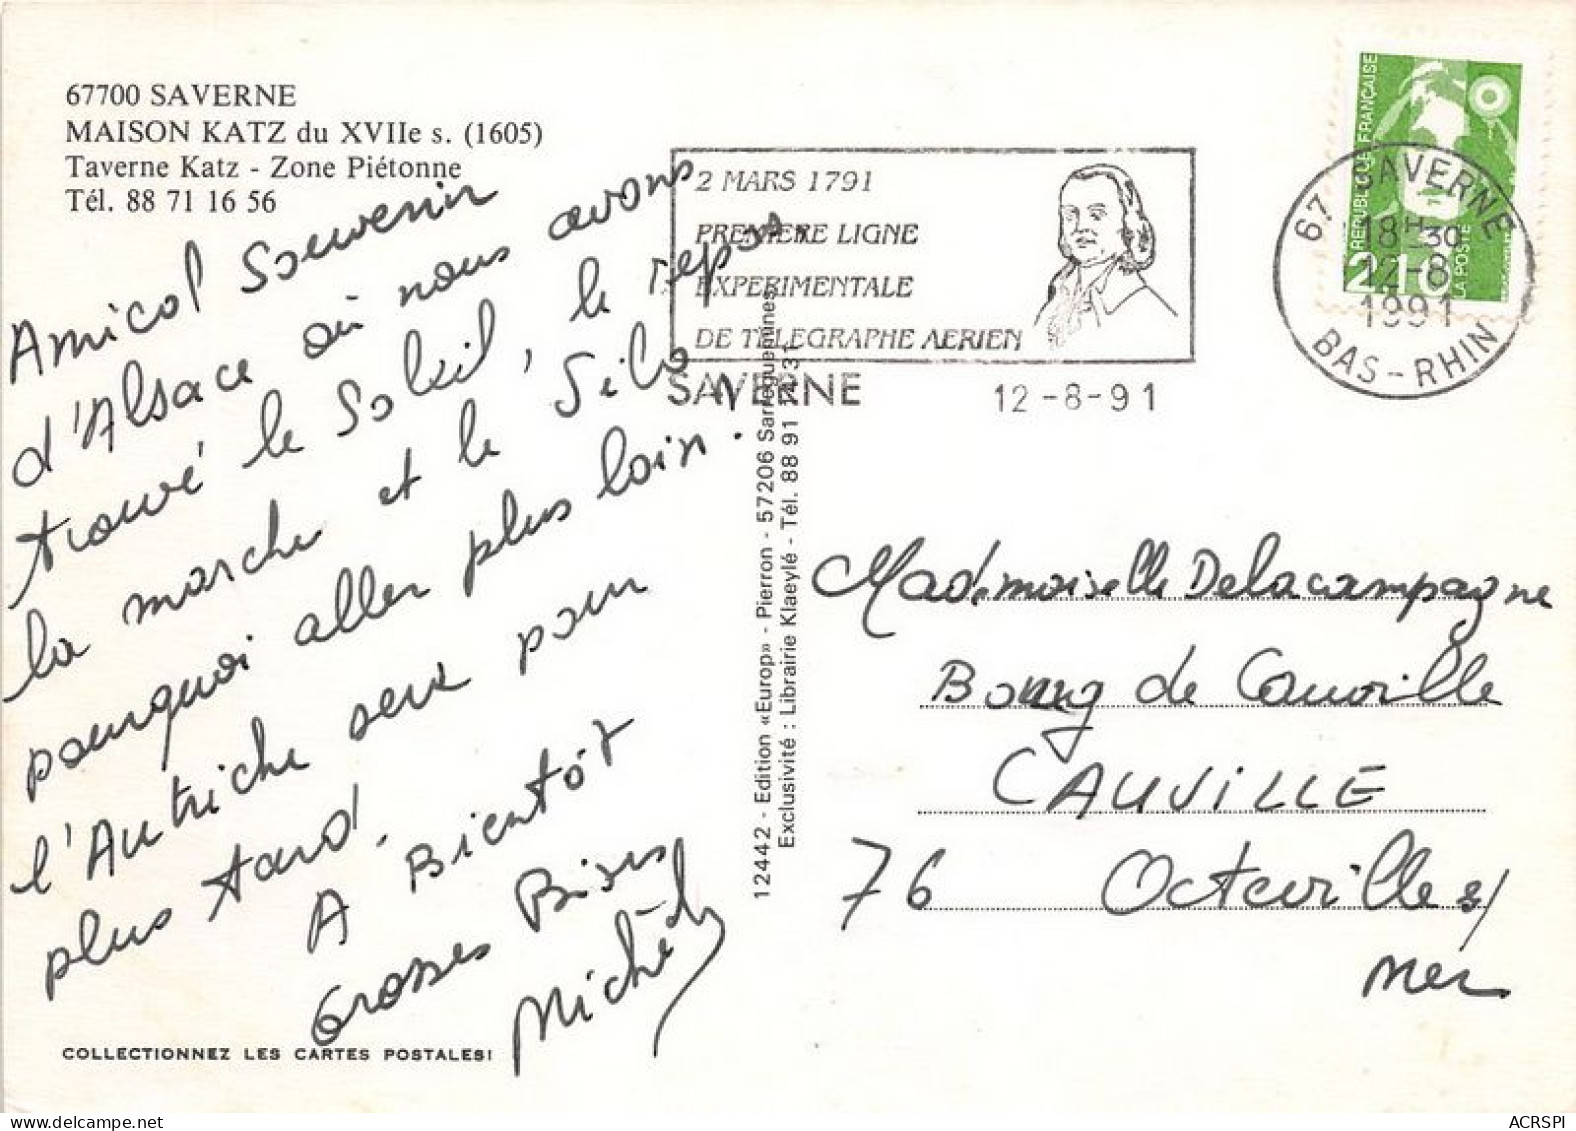 67700 SAVERNE
MAISON KATZ du XVIIe s. (1605)
Taverne Katz - Zone Piétonne
Tél. 88 71 16 56
Amical Souvenir
d'Alsace où nous avons
trouvé le Soleil, le repos,
la marche et le Silo
pourquoi aller plus loin.
l'Autriche sera pour
plus tard.
A Bientôt
Grosses Bises
COLLECTIONNEZ LES CARTES POSTALES!
12442 - Edition «Europ» - Pierron - 57206 Sarreguemines
Exclusivité : Librairie Klaeylé - Tél. 88 91 14 31
2 MARS 1791
PREMIERE LIGNE
EXPERIMENTALE
DE TELEGRAPHE AERIEN
SAVERNE
12-8-91
REPUBLIQUE FRANÇAISE
2,10
LA POSTE
67 SAVERNE
18H30
12-8
1991
BAS-RHIN
Mademoiselle Delacampagne
Bourg de Cauville
CAUVILLE
76 Octeville s/
mer
ACRSPI